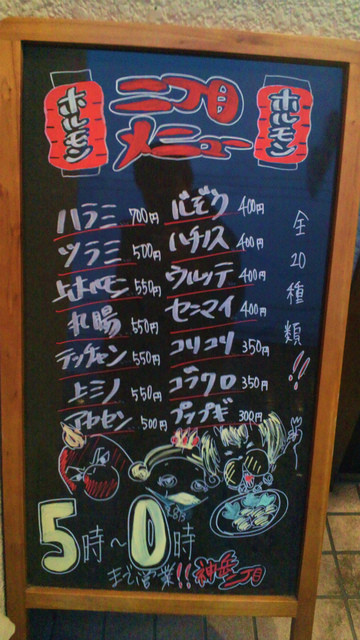 ホルモン
二丁目
メニュー
ホルモン
ハラミ 700円
ツラミ 500円
上ホルモン 550円
丸腸 550円
テッチャン 550円
上ミノ 550円
アカセン 500円
バサ 400円
ハチノス 400円
ウルッテ 400円
センマイ 400円
コリコリ 350円
コブクロ 350円
フップギ 300円
全20種類!!
5時～0時
まで営業!!
二丁目